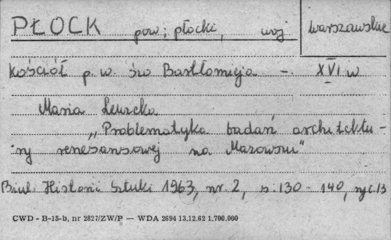 PŁOCK pow; płocki, woj warszawskie
kościół p.w. św Bartłomieja - XVI w
Maria
"Problematyka badań architektu-
ry renesansowej na Mazowszu"
Biul. Historii Sztuki 1963, nr. 2, s. 130 - 140, ryc. 13
CWD - B-15-b, nr 2827/ZW/P — WDA 2694 13.12.62 1.700.000